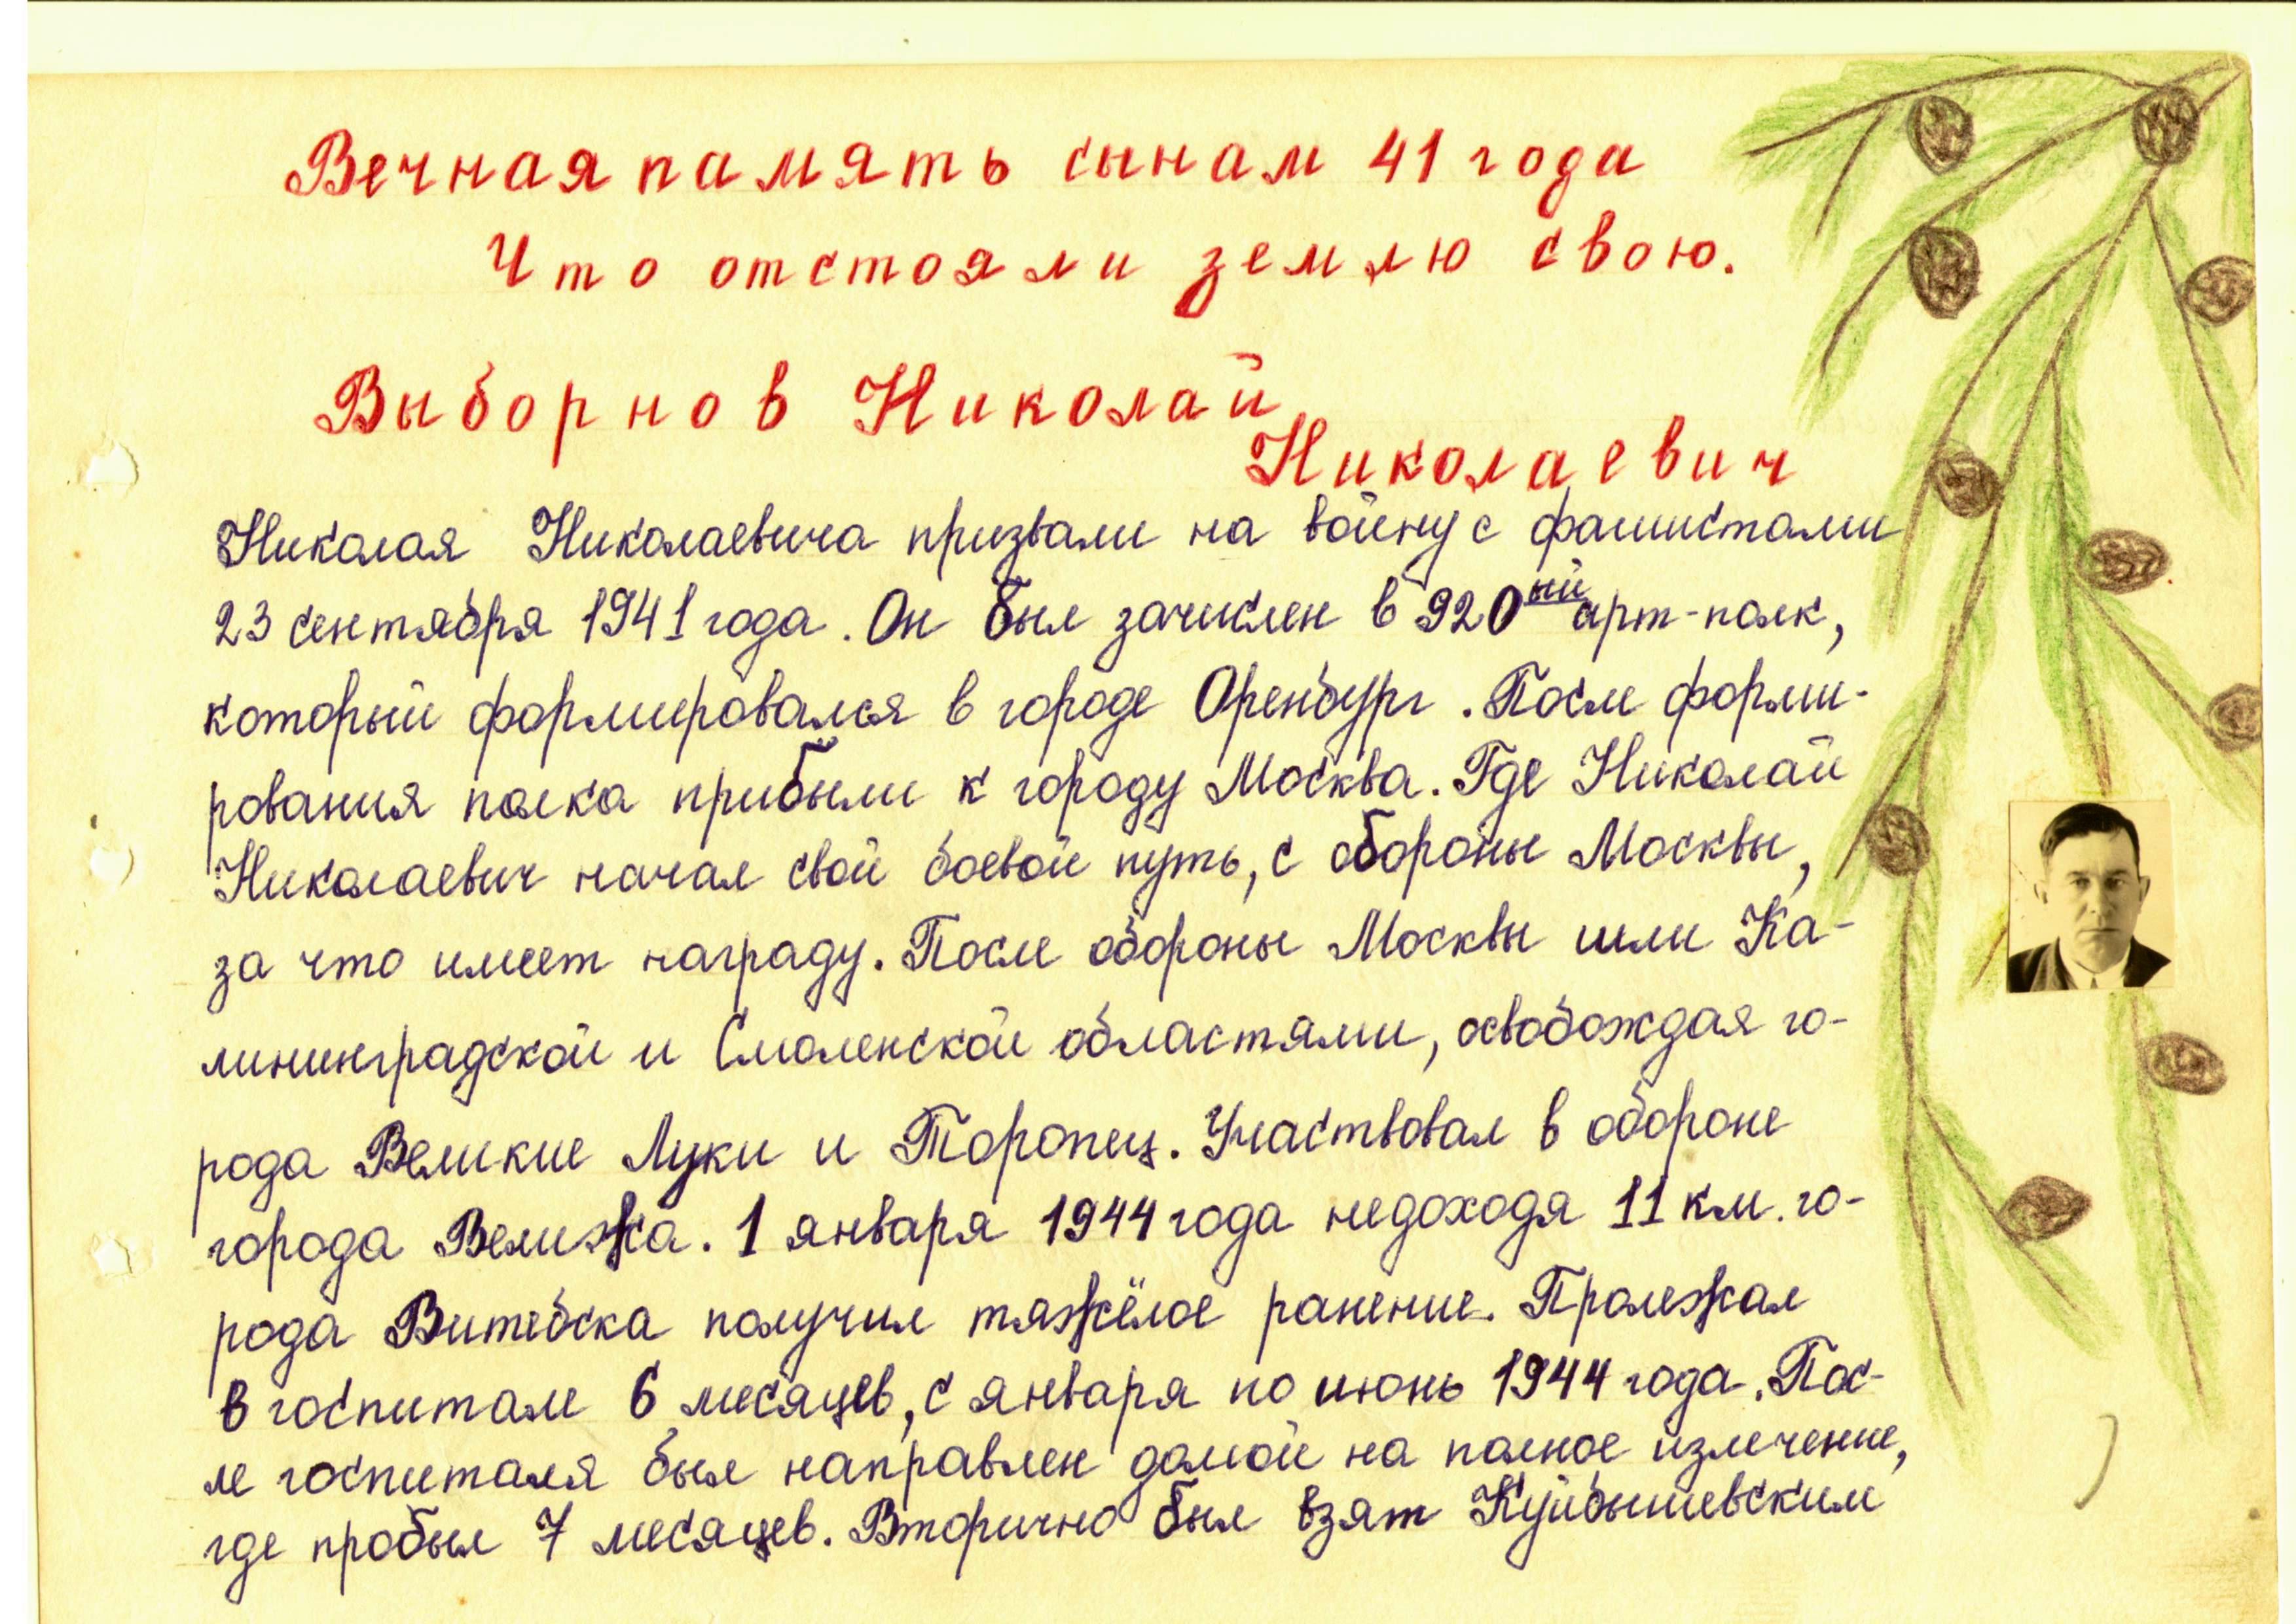 Вечная память сынам 41 года
Что отстояли землю свою.
Выборнов Николай
Николаевич
Николая Николаевича призвали на войну с фашистами
23 сентября 1941 года. Он был зачислен в 920ый арт-полк,
который формировался в городе Оренбург. После форми-
рования полка прибыли к городу Москва. Где Николай
Николаевич начал свой боевой путь, с обороны Москвы,
за что имеет награду. После обороны Москвы шли Ка-
лининградской и Смоленской областями, освобождая го-
рода Великие Луки и Торопец. Участвовал в обороне
города Велижа. 1 января 1944 года недоходя 11 км. го-
рода Витебска получил тяжёлое ранение. Пролежал
в госпитале 6 месяцев, с января по июнь 1944 года. Пос-
ле госпиталя был направлен домой на полное излечение,
где пробыл 7 месяцев. Вторично был взят Куйбышевским